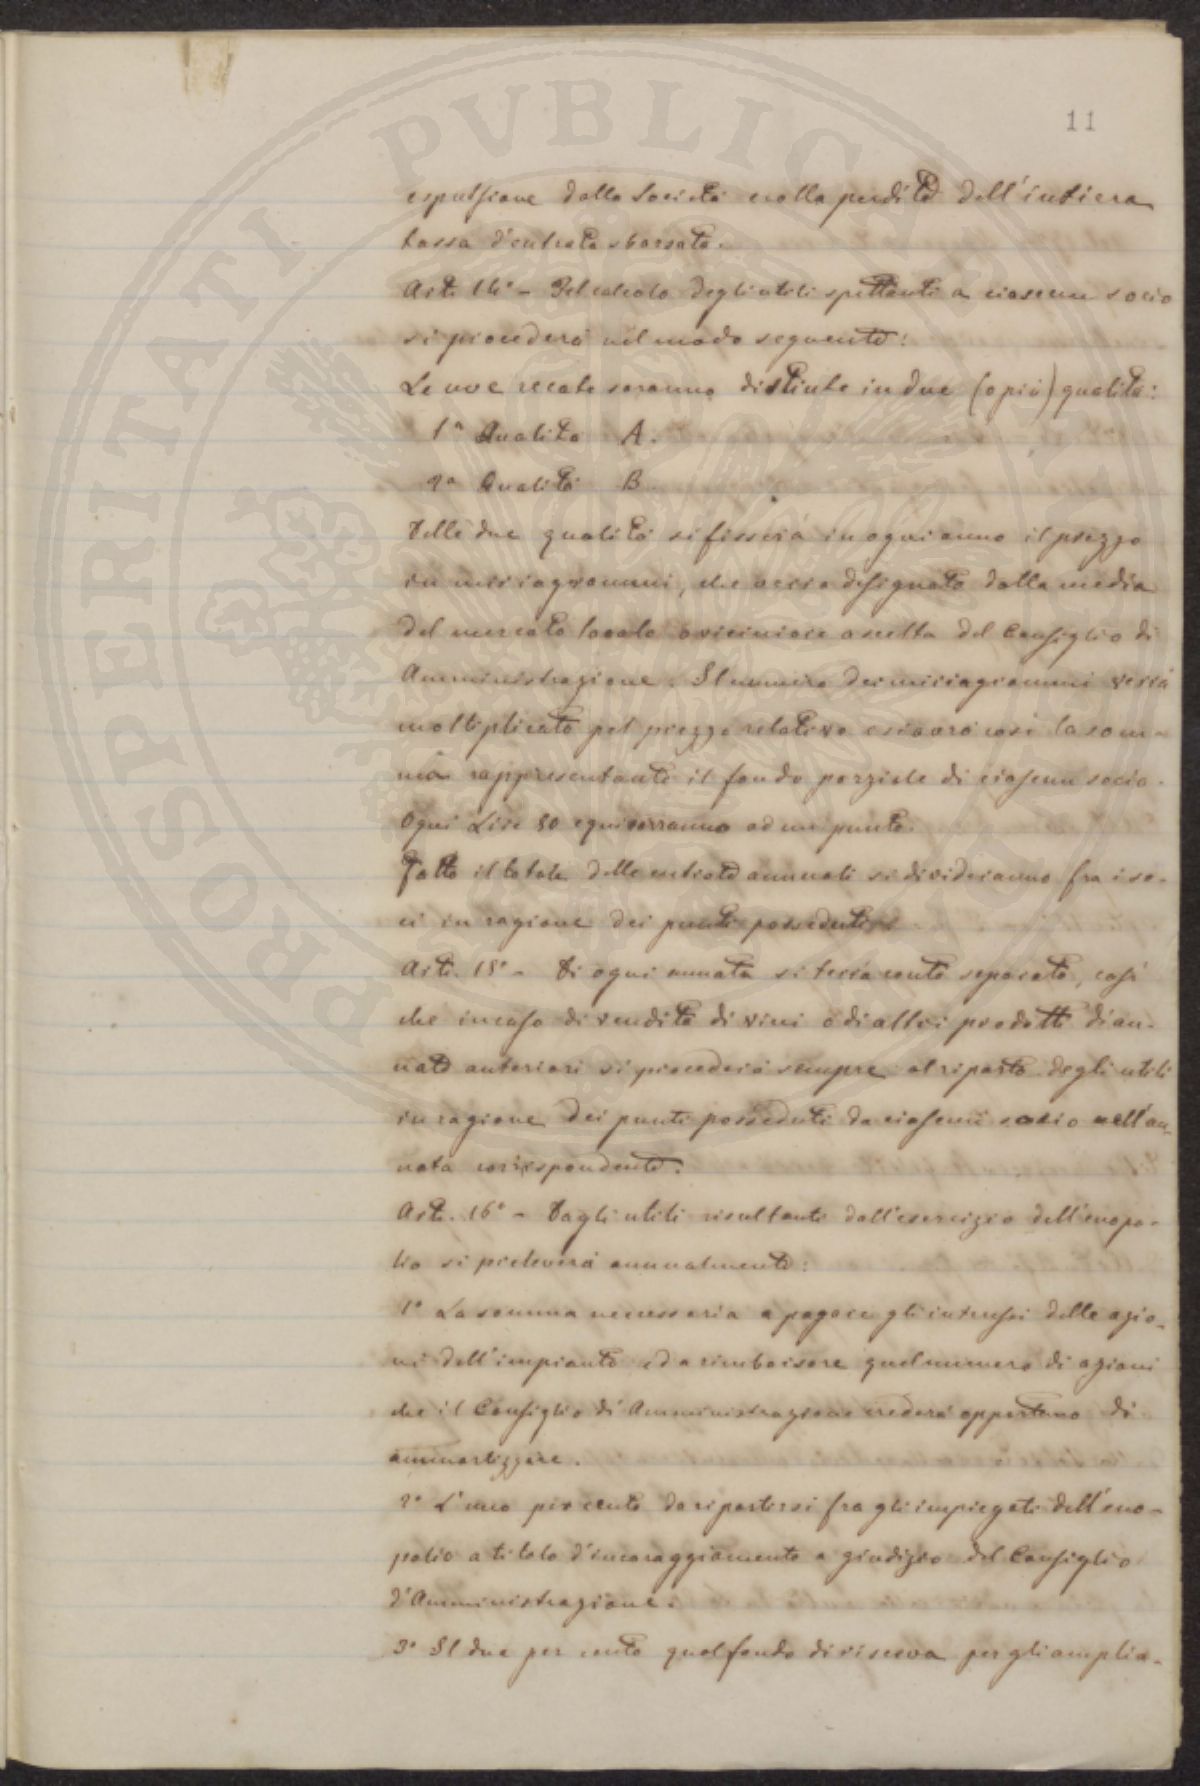 11
espulsione dalla Società e colla perdita dell'intiera
tassa d'entrata sborsata.
Art. 14° - Pel calcolo degli utili spettanti a ciascun socio
si procederà nel modo seguente:
Le uve recate saranno distinte in due (o più) qualità:
1ª Qualità A.
2ª Qualità B.
Delle due qualità si fisserà in ogni anno il prezzo
in miriagrammi, che verrà designato dalla media
del mercato locale o viciniore a scelta del Consiglio di
Amministrazione. Il numero dei miriagrammi verrà
moltiplicato pel prezzo relativo e si avrà così la som-
ma rappresentante il fondo porziale di ciascun socio.
Ogni Lire 50 equivarranno ad un punto.
Fatto il totale delle entrate annuali si divideranno fra i so-
ci in ragione dei punti posseduti.
Art. 15° - Di ogni annata si terrà conto separato, così
che in caso di vendita di vini o di altri prodotti di an-
nate anteriori si procederà sempre al riparto degli utili
in ragione dei punti posseduti da ciascun socio nell'an-
nata corrispondente.
Art. 16° - Dagli utili risultanti dall'esercizio dell'enopo-
lio si preleverà annualmente:
1° La somma necessaria a pagare gli interessi delle azio-
ni dell'impianto ed a rimborsare quel numero di azioni
che il Consiglio di Amministrazione crederà opportuno di
ammortizzare.
2° L'uno per cento da ripartirsi fra gli impiegati dell'eno-
polio a titolo d'incoraggiamento a giudizio del Consiglio
d'Amministrazione.
3° Il due per cento qual fondo di riserva per gli amplia-
PROSPERITATI PVBLICAE